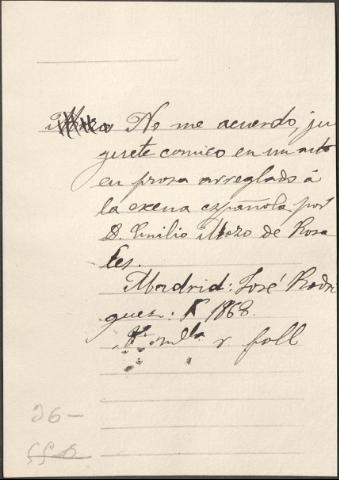 No me acuerdo, ju
guete comico en un acto
en prosa arreglado á
la escena española por
D. Emilio Mozo de Rosa
les.
Madrid: José Rodri
guez: 1868.
4º mlla r. foll
26-